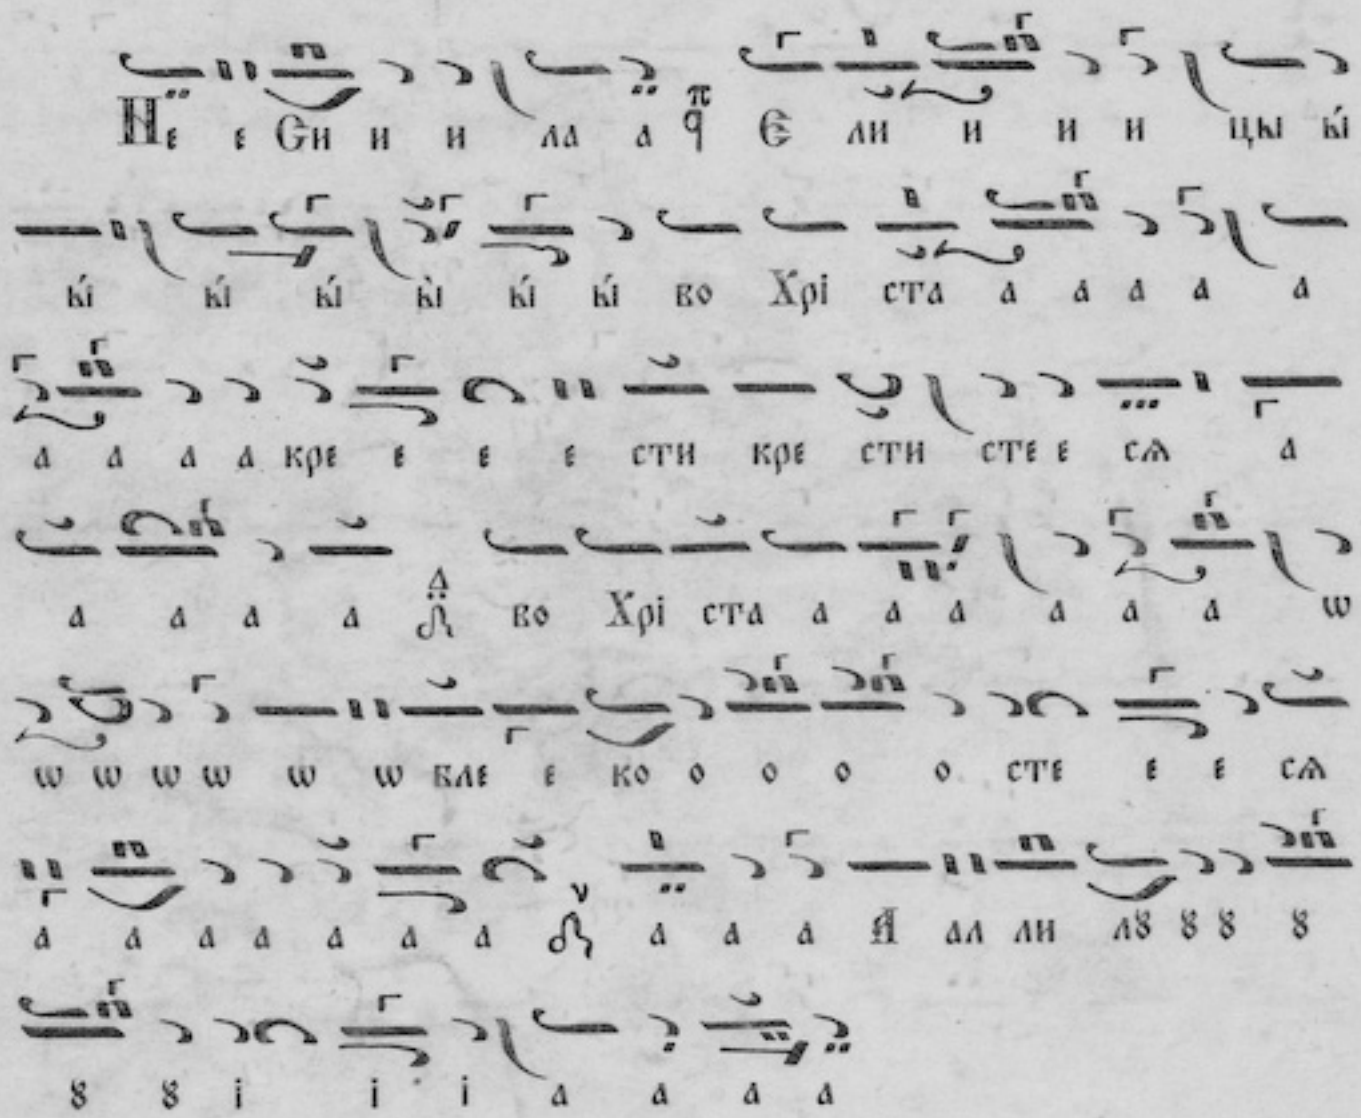 Не е Си и и ла а π ϥ Є ли и и и цы ы́
ы́ ы́ ы́ ы̀ ы́ ы́ во Хрі ста а а а а а
а а а а кре е е е сти кре сти сте е сѧ а
а а а а Δ во Хрі ста а а а а а а ѡ
ѡ ѡ ѡ ѡ ѡ ѡ вле е ко о о о о сте е е сѧ
а а а а а а а ν а а а А ал ли лꙋ ꙋ ꙋ ꙋ
ꙋ ꙋ і і і а а а а